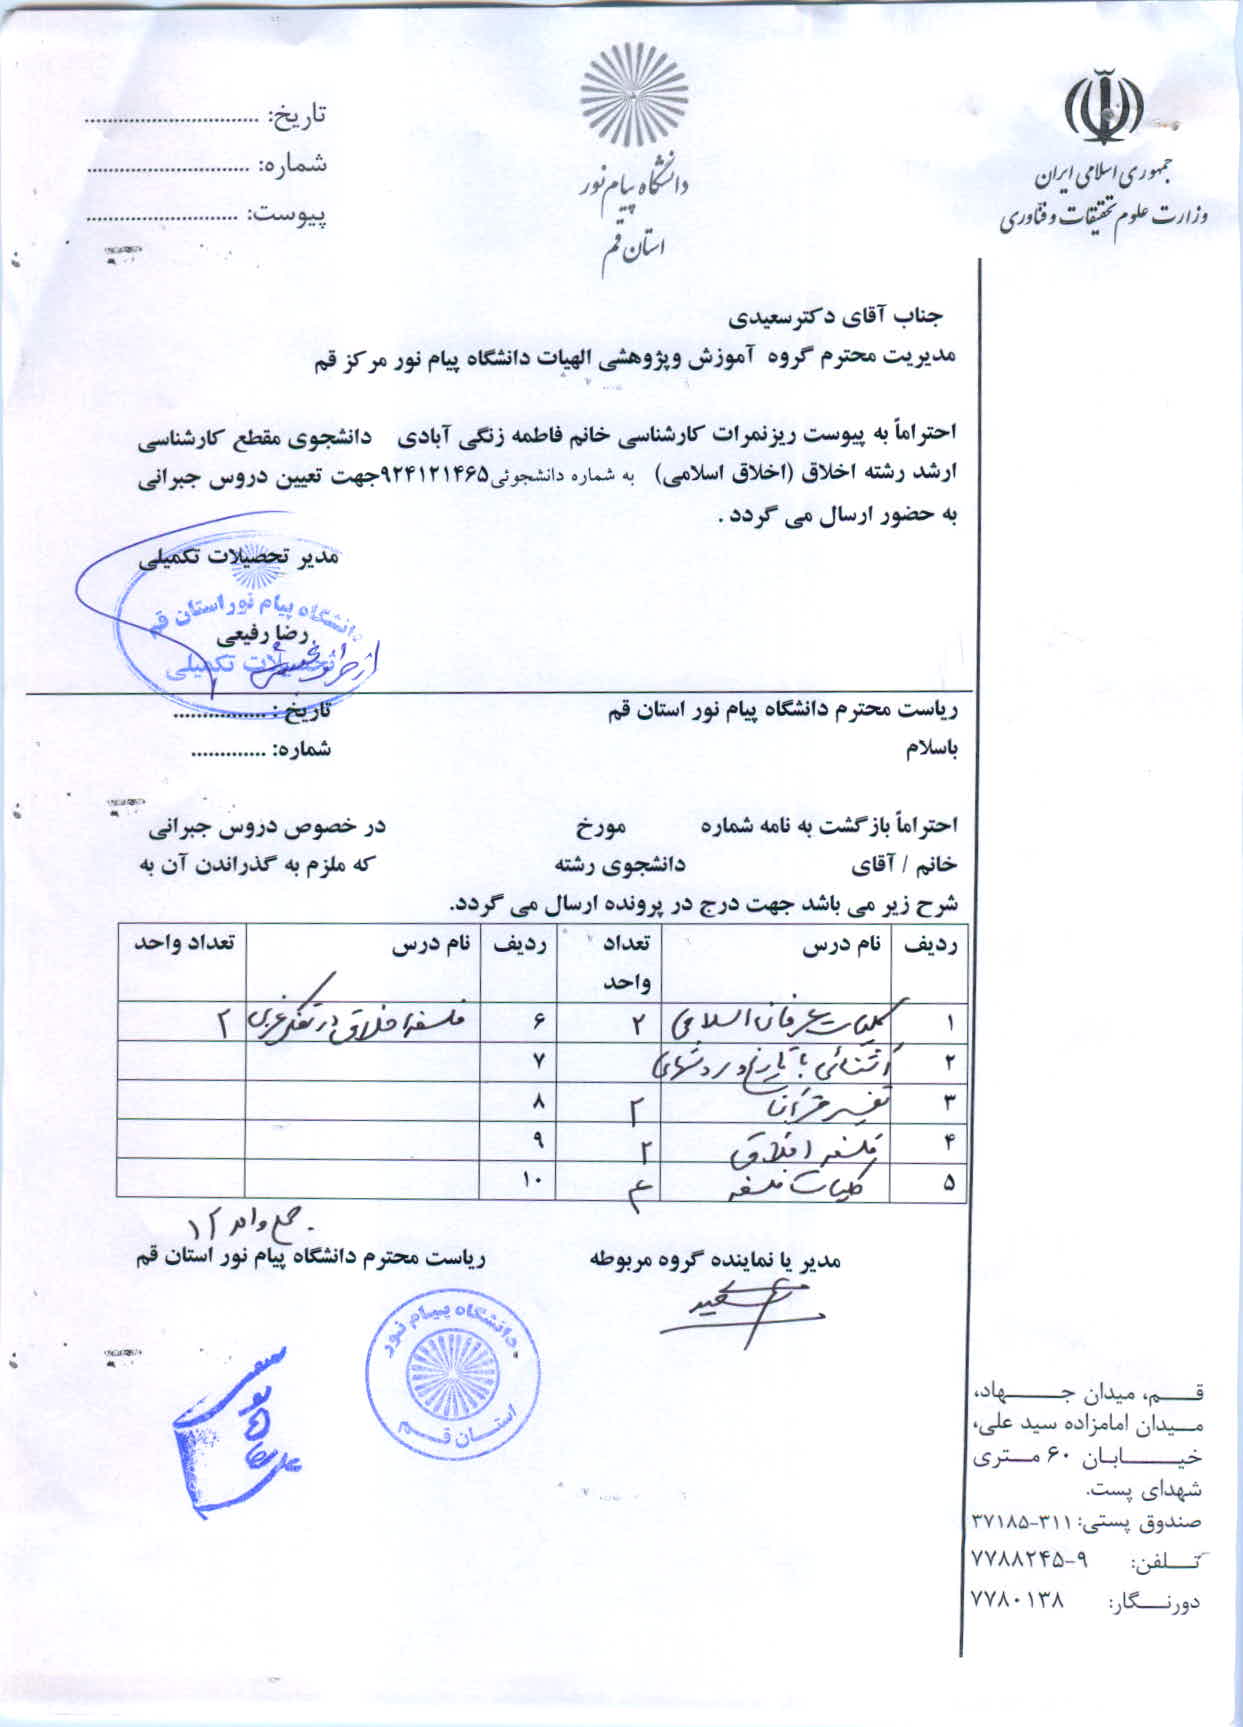 جمهوری اسلامی ایران
وزارت علوم تحقیقات و فناوری
دانشگاه پیام نور
استان قم
تاریخ: ..............................
شماره: ..............................
پیوست: ..............................
جناب آقای دکترسعیدی
مدیریت محترم گروه آموزش وپژوهشی الهیات دانشگاه پیام نور مرکز قم
احتراماً به پیوست ریزنمرات کارشناسی خانم فاطمه زنگی آبادی دانشجوی مقطع کارشناسی
ارشد رشته اخلاق (اخلاق اسلامی) به شماره دانشجوئی۹۲۴۱۲۱۴۶۵جهت تعیین دروس جبرانی
به حضور ارسال می گردد .
مدیر تحصیلات تکمیلی
دانشگاه پیام نور استان قم
رضا رفیعی
تحصیلات تکمیلی
ریاست محترم دانشگاه پیام نور استان قم
تاریخ : ................
باسلام
شماره: .............
احتراماً بازگشت به نامه شماره مورخ در خصوص دروس جبرانی
خانم / آقای دانشجوی رشته که ملزم به گذراندن آن به
شرح زیر می باشد جهت درج در پرونده ارسال می گردد.
ردیف نام درس تعداد واحد ردیف نام درس تعداد واحد
۱ کلیات عرفان اسلامی ۲ ۶ فلسفه اخلاق در تفکر غربی ۲
۲ آشنائی با تاریخ و روشهای ۷
۳ تفسیر قرآن ۲ ۸
۴ فلسفه اخلاق ۲ ۹
۵ کلیات فلسفه ۴ ۱۰
جمع واحد ۱۲
مدیر یا نماینده گروه مربوطه
ریاست محترم دانشگاه پیام نور استان قم
دانشگاه پیام نور
استان قم
قم، میدان جهاد،
میدان امامزاده سید علی،
خیابان ۶۰ متری
شهدای پست.
صندوق پستی: ۳۱۱-۳۷۱۸۵
تلفن: ۹-۷۷۸۸۲۴۵
دورنگار: ۷۷۸۰۱۳۸